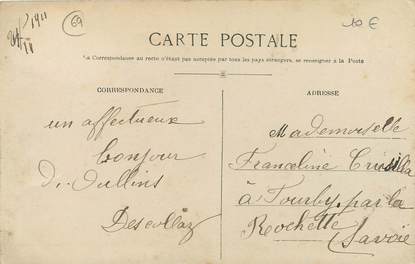 1911
69
10 €
CARTE POSTALE
La Correspondance au recto n'étant pas acceptée par tous les pays étrangers, se renseigner à la Poste
CORRESPONDANCE
un affectueux
bonjour
d'Oullins
Descollaz
ADRESSE
Mademoiselle
Franceline
à Tourby, par la
Rochette
Savoie